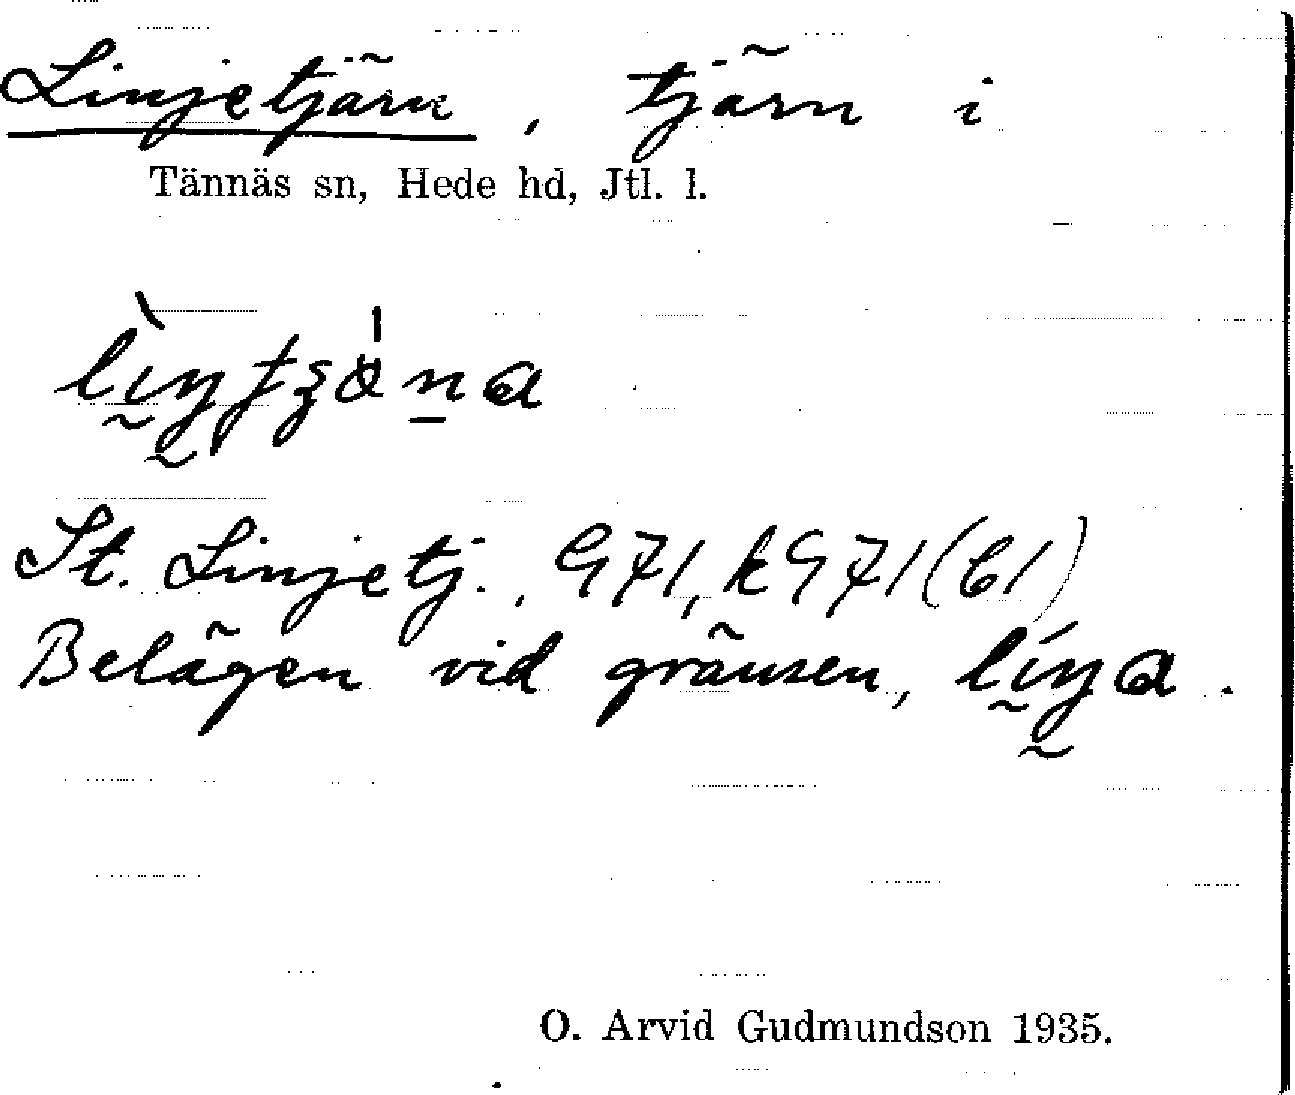 Linjetjärn, tjärn i
Tännäs sn, Hede hd, Jtl. l.
St. Linjetj., G71, kG71(C1)
Belägen vid gränsen,
O. Arvid Gudmundson 1935.